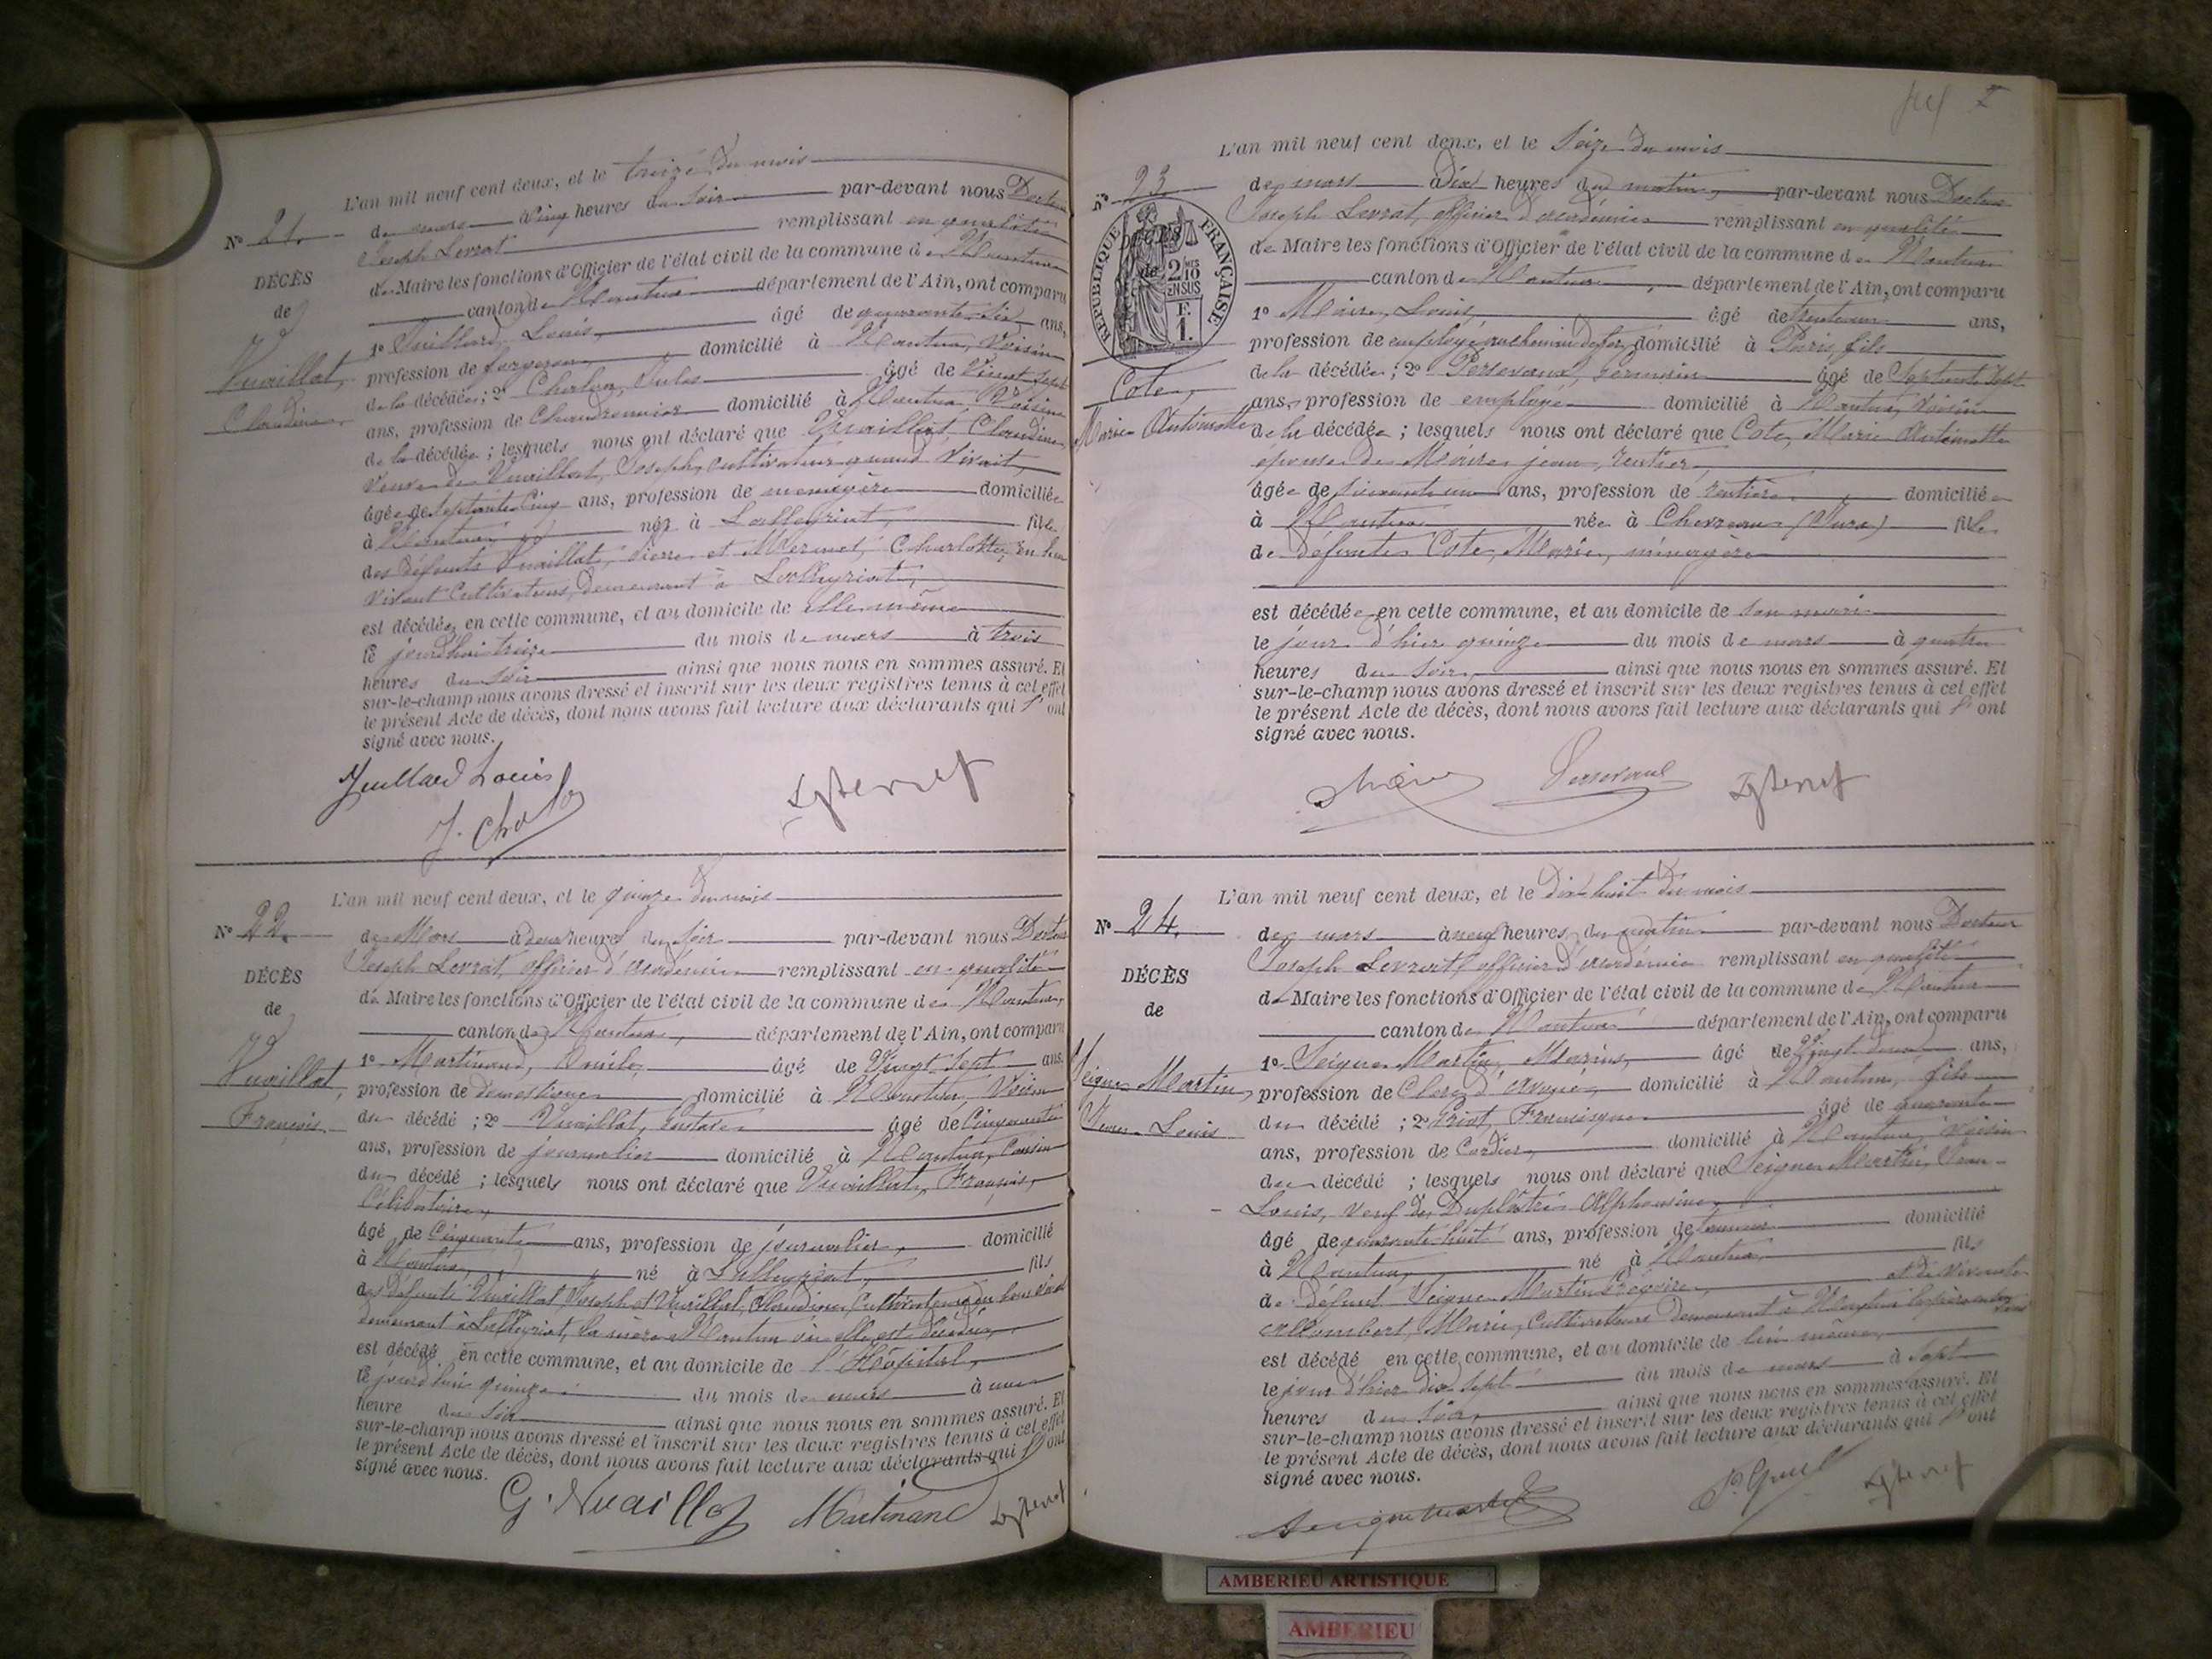 L'an mil neuf cent deux, et le treize du mois
de mars à cinq heures du soir par-devant nous Docteur
Joseph Levrat remplissant en qualité
de Maire les fonctions d'Officier de l'état civil de la commune de Nantua
canton de Nantua département de l'Ain, ont comparu
1º Juillard, Louis, âgé de quarante-six ans,
profession de forgeron domicilié à Nantua, Voisin
de la décédée; 2º Charlon, Jules âgé de Vingt sept
ans, profession de Chaudronnier domicilié à Nantua, Voisin
de la décédée; lesquels nous ont déclaré que Vuaillat, Claudine,
Veuve de Vuaillat, Joseph, cultivateur quand vivait,
âgée de septante cinq ans, profession de ménagère domiciliée
à Nantua née à Lalleyriat, fille
des défunts Vuaillat, Pierre et Mermet, Charlotte, en leur
vivant cultivateurs, demeurant à Lalleyriat,
est décédée en cette commune, et au domicile de elle même
le jourd'hui treize du mois de mars à trois
heures du soir ainsi que nous nous en sommes assuré. Et
sur-le-champ nous avons dressé et inscrit sur les deux registres tenus à cet effet
le présent Acte de décès, dont nous avons fait lecture aux déclarants qui l'ont
signé avec nous.
Nº 21.
DÉCÈS
de
Vuaillat,
Claudine
Juillard Louis
L'an mil neuf cent deux, et le quinze du mois
de Mars à deux heures du soir par-devant nous Docteur
Joseph Levrat, officier d'académie remplissant en qualité
de Maire les fonctions d'Officier de l'état civil de la commune de Nantua,
canton de Nantua, département de l'Ain, ont comparu
1º Martinand, Emile, âgé de Vingt sept ans,
profession de domestique domicilié à Nantua, Voisin
du décédé; 2º Vuaillat, Gustave âgé de Cinquante
ans, profession de journalier domicilié à Nantua, Cousin
du décédé; lesquels nous ont déclaré que Vuaillat, François,
Célibataire,
âgé de Cinquante ans, profession de journalier, domicilié
à Nantua, né à Lalleyriat, fils
des défunts Vuaillat, Joseph et Vuaillat, Claudine, Cultivateurs en leur vivant
demeurant à Lalleyriat, la mère à Nantua où elle est décédée,
est décédé en cette commune, et au domicile de l'Hôpital,
le jourd'hui quinze du mois de mars à une
heure du soir ainsi que nous nous en sommes assuré. Et
sur-le-champ nous avons dressé et inscrit sur les deux registres tenus à cet effet
le présent Acte de décès, dont nous avons fait lecture aux déclarants qui l'ont
signé avec nous.
Nº 22.
DÉCÈS
de
Vuaillat,
François
G. Vuaillat Martinand
L'an mil neuf cent deux, et le seize du mois
de mars à dix heures du matin, par-devant nous Docteur
Joseph Levrat, officier d'académie remplissant en qualité
de Maire les fonctions d'Officier de l'état civil de la commune de Nantua
canton de Nantua, département de l'Ain, ont comparu
1º Maire, Louis, âgé de trente un ans,
profession de employé au chemin de fer, domicilié à Paris, fils
de la décédée; 2º Persevaux, Germain âgé de Septante sept
ans, profession de employé domicilié à Nantua, Voisin
de la décédée; lesquels nous ont déclaré que Cote, Marie Antoinette
épouse de Maire jean, rentier,
âgée de soixante un ans, profession de rentière domiciliée
à Nantua née à Chevreaux (Jura) fille
de défunte Cote, Marie, ménagère
est décédée en cette commune, et au domicile de son mari
le jour d'hier quinze du mois de mars à quatre
heures du soir, ainsi que nous nous en sommes assuré. Et
sur-le-champ nous avons dressé et inscrit sur les deux registres tenus à cet effet
le présent Acte de décès, dont nous avons fait lecture aux déclarants qui l'ont
signé avec nous.
Nº 23
DÉCÈS
de
RÉPUBLIQUE FRANÇAISE
2/10 EN SUS
F.
1.
Cote,
Marie Antoinette
L'an mil neuf cent deux, et le dix-huit du mois
de mars à neuf heures du matin par-devant nous Docteur
Joseph Levrat, officier d'académie remplissant en qualité
de Maire les fonctions d'Officier de l'état civil de la commune de Nantua
canton de Nantua département de l'Ain, ont comparu
1º Seigne Martin, Marius, âgé de Vingt deux ans,
profession de Clerc d'avoué, domicilié à Nantua, fils
du décédé; 2º Francisque âgé de quarante
ans, profession de Cordier, domicilié à Nantua, Voisin
du décédé; lesquels nous ont déclaré que Seigne Martin, Jean-
Louis, veuf de Duplâtre Alphonsine,
âgé de quarante-huit ans, profession de tanneur domicilié
à Nantua, né à Nantua, fils
de défunt Seigne Martin Grégoire et de vivante
Allombert, Marie, Cultivateurs demeurant à Nantua
est décédé en cette commune, et au domicile de lui même,
le jour d'hier dix sept du mois de mars à sept
heures du soir, ainsi que nous nous en sommes assuré. Et
sur-le-champ nous avons dressé et inscrit sur les deux registres tenus à cet effet
le présent Acte de décès, dont nous avons fait lecture aux déclarants qui l'ont
signé avec nous.
Nº 24.
DÉCÈS
de
Seigne Martin,
Jean Louis
AMBERIEU ARTISTIQUE
AMBERIEU